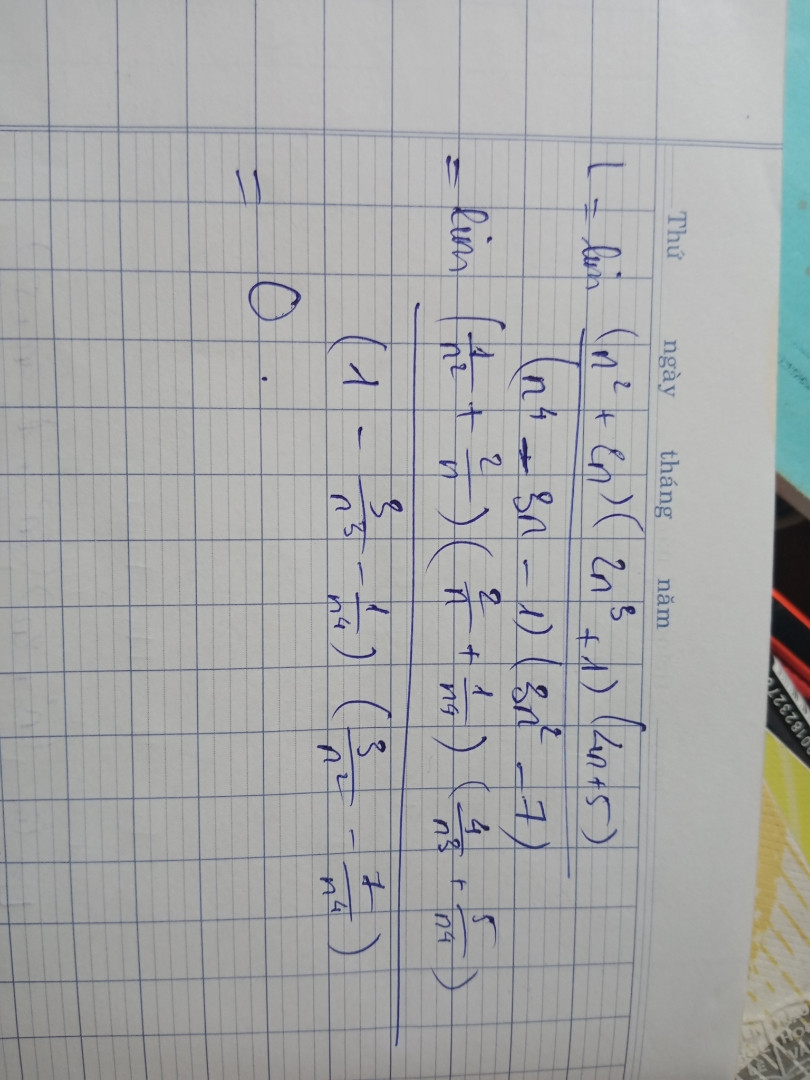 Thứ ngày tháng năm
L = lim (n² + 2n)(2n³ + 1)(4n+5)
(n⁴ - 3n - 1)(3n² - 7)
= lim (1/n² + 2/n)(2/n + 1/n⁴)(4/n³ + 5/n⁴)
(1 - 3/n³ - 1/n⁴)(3/n² - 7/n⁴)
= 0.